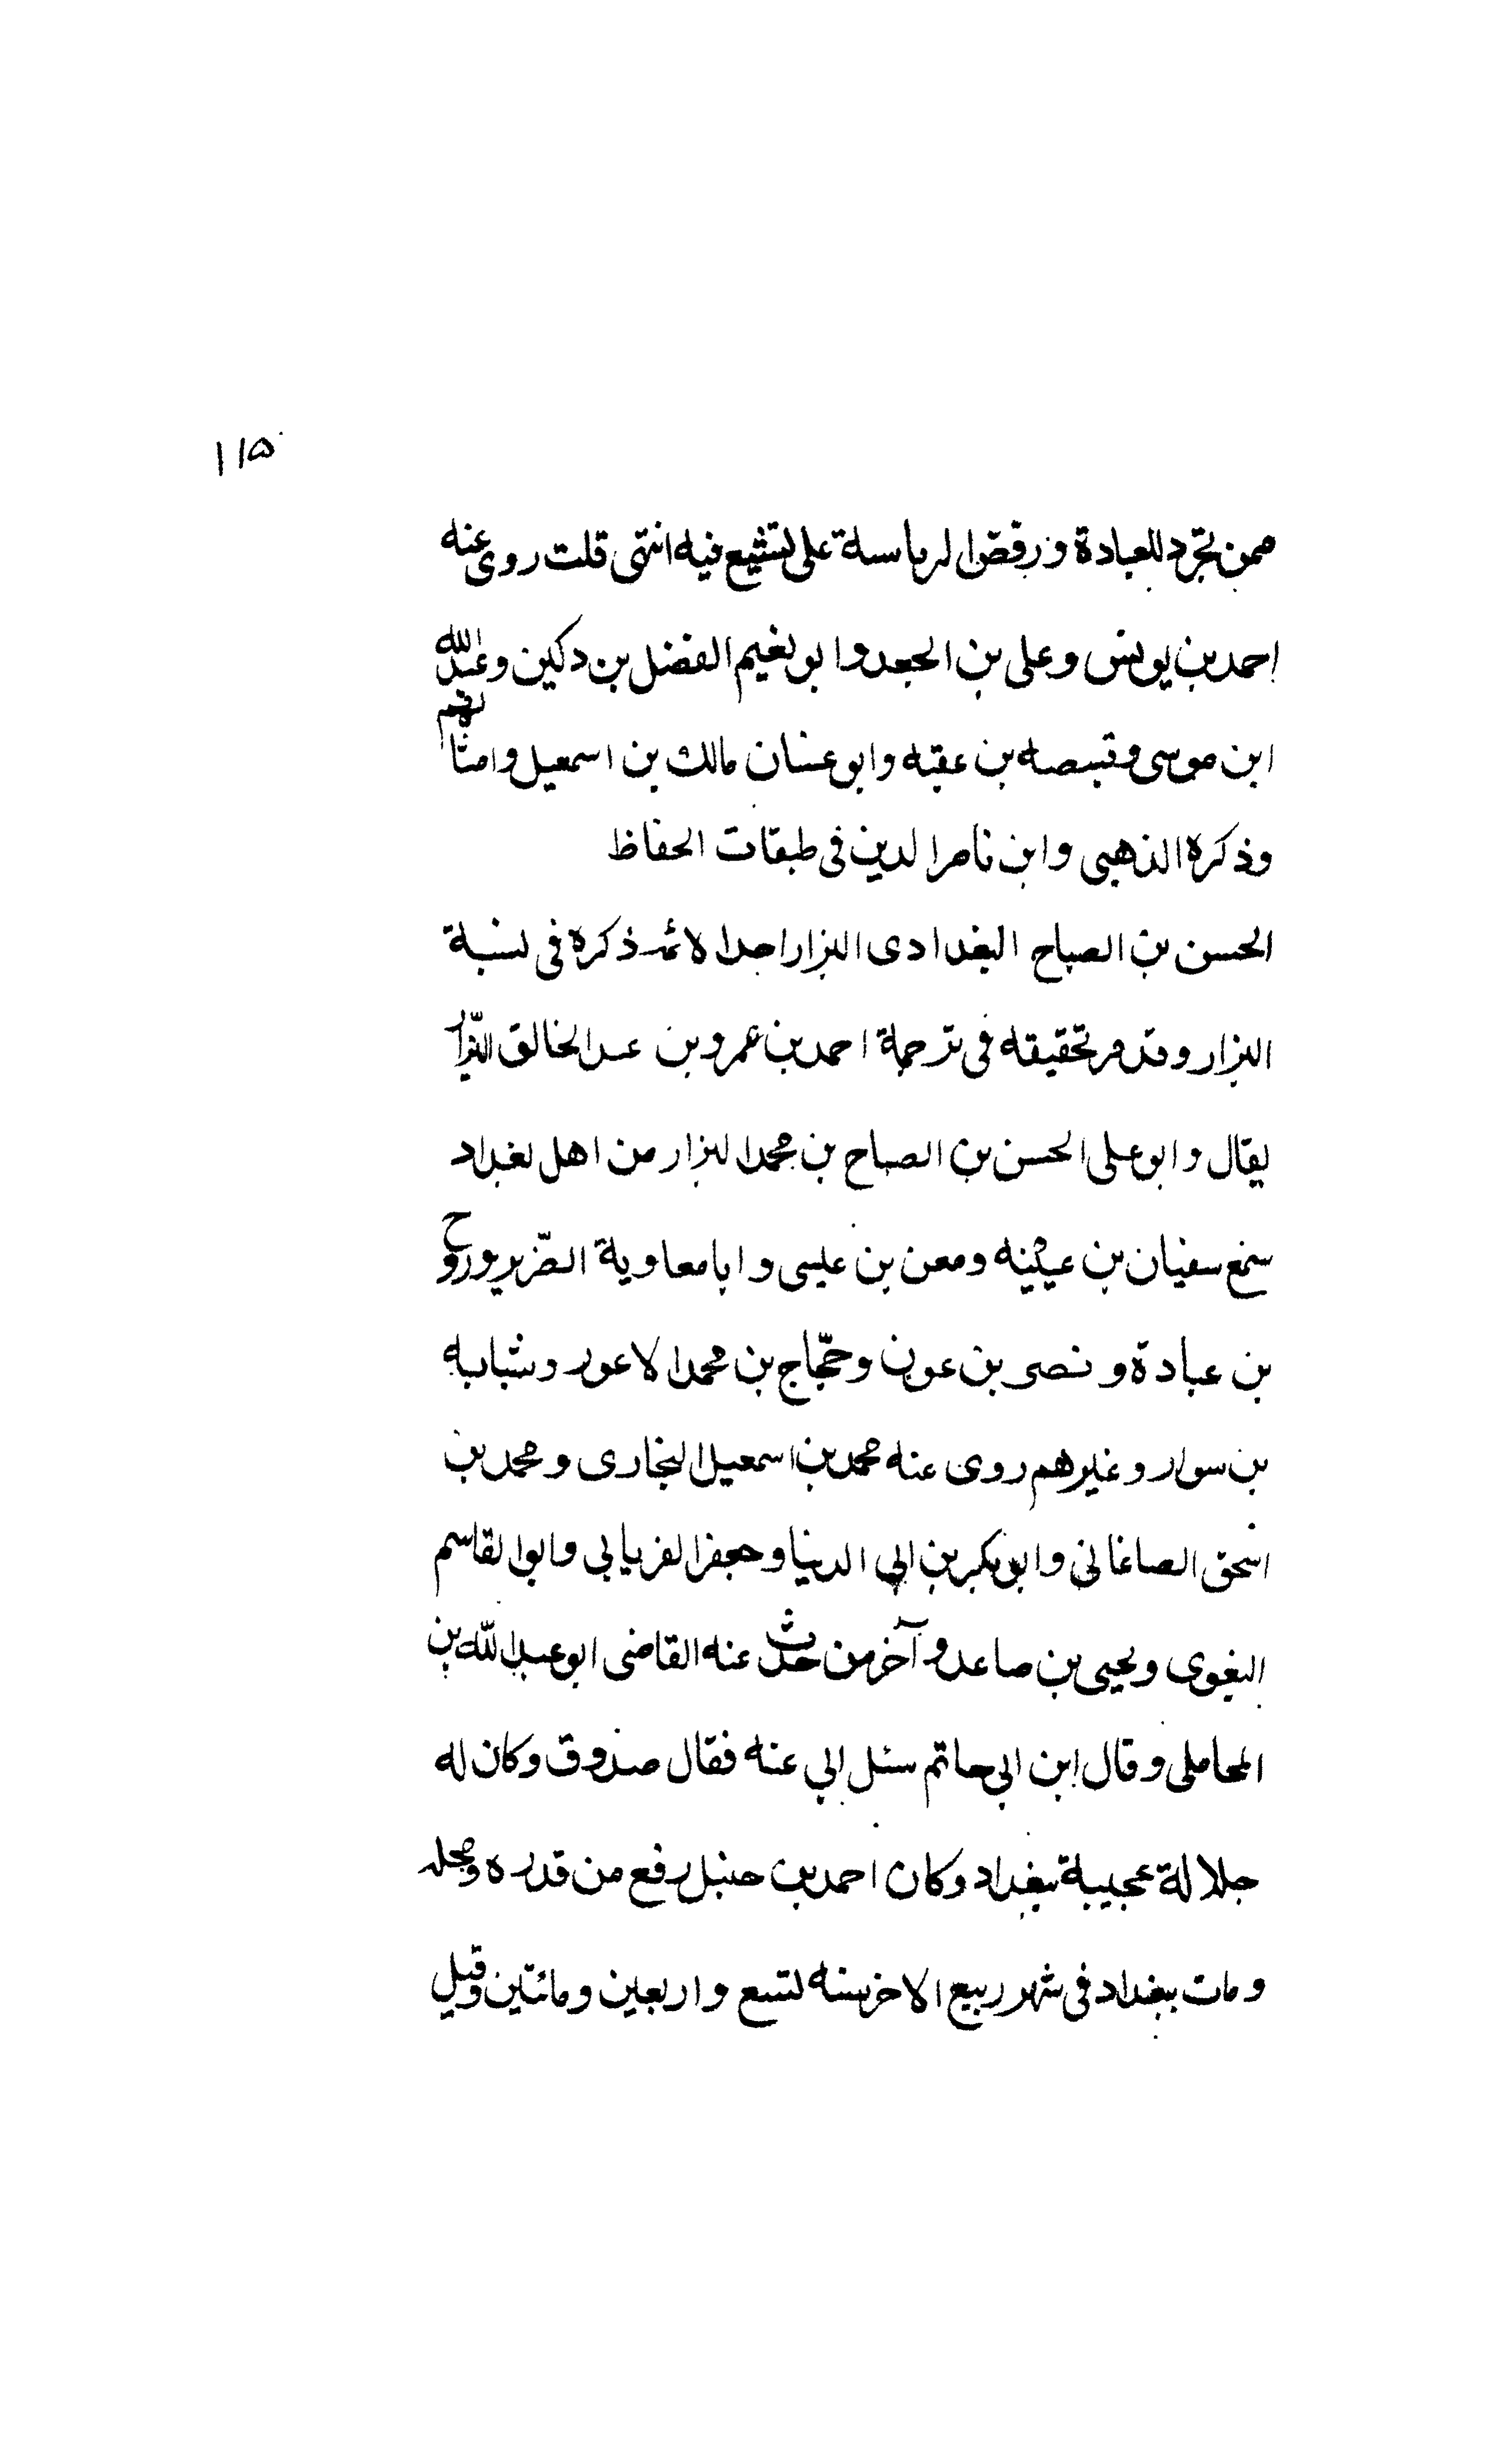 ١١٥
ممن تجرد للعبادة ورفض الرياسة على تشيع فيه انتهى قلت روى عنه
احمد بن يونس وعلى بن الجعد وابو نعيم الفضل بن دكين وعبيد الله
ابن موسى وقبيصه بن عقبه وابو غسان مالك بن اسمعيل وامثالهم
وذكره الذهبى وابن ناصر الدين فى طبقات الحفاظ
الحسن بن الصباح البغدادى البزار احد الائمه ذكره فى نسبة
البزار وقد مر تحقيقه فى ترجمة احمد بن عمرو بن عبد الخالق البزار
يقال وابو على الحسن بن الصباح بن محمد البزار من اهل بغداد
سمع سفيان بن عيينه ومعن بن عيسى وابا معاوية الضرير وروح
بن عبادة و نصر بن عون وحجاج بن محمد الاعور وشبابه
بن سوار وغيرهم روى عنه محمد بن اسمعيل البخارى ومحمد بن
اسحق الصاغانى وابو بكر بن ابي الدنيا وجعفر الفريابى وابو القاسم
البغوى ويحيى بن صاعد وآخر من حدث عنه القاضى ابو عبد الله بن
المحاملى وقال ابن ابى حاتم سئل ابي عنه فقال صدوق وكان له
جلالة عجيبة ببغداد وكان احمد بن حنبل رفع من قدره ومجله
ومات ببغداد فى شهر ربيع الاخر سنه لتسع واربعين ومائتين وقيل